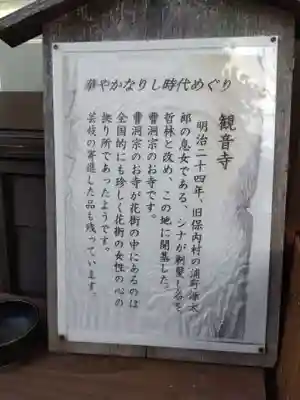 華やかなりし時代めぐり
観音寺
明治二十四年、旧保内村の浦町源太
郎の息女である、シナが剃髪し名を
哲林と改め、この地に開基した
曹洞宗のお寺です。
曹洞宗のお寺が花街の中にあるのは
全国的にも珍しく花街の女性の心の
拠り所であったようです。
芸妓の寄進した品も残っています。